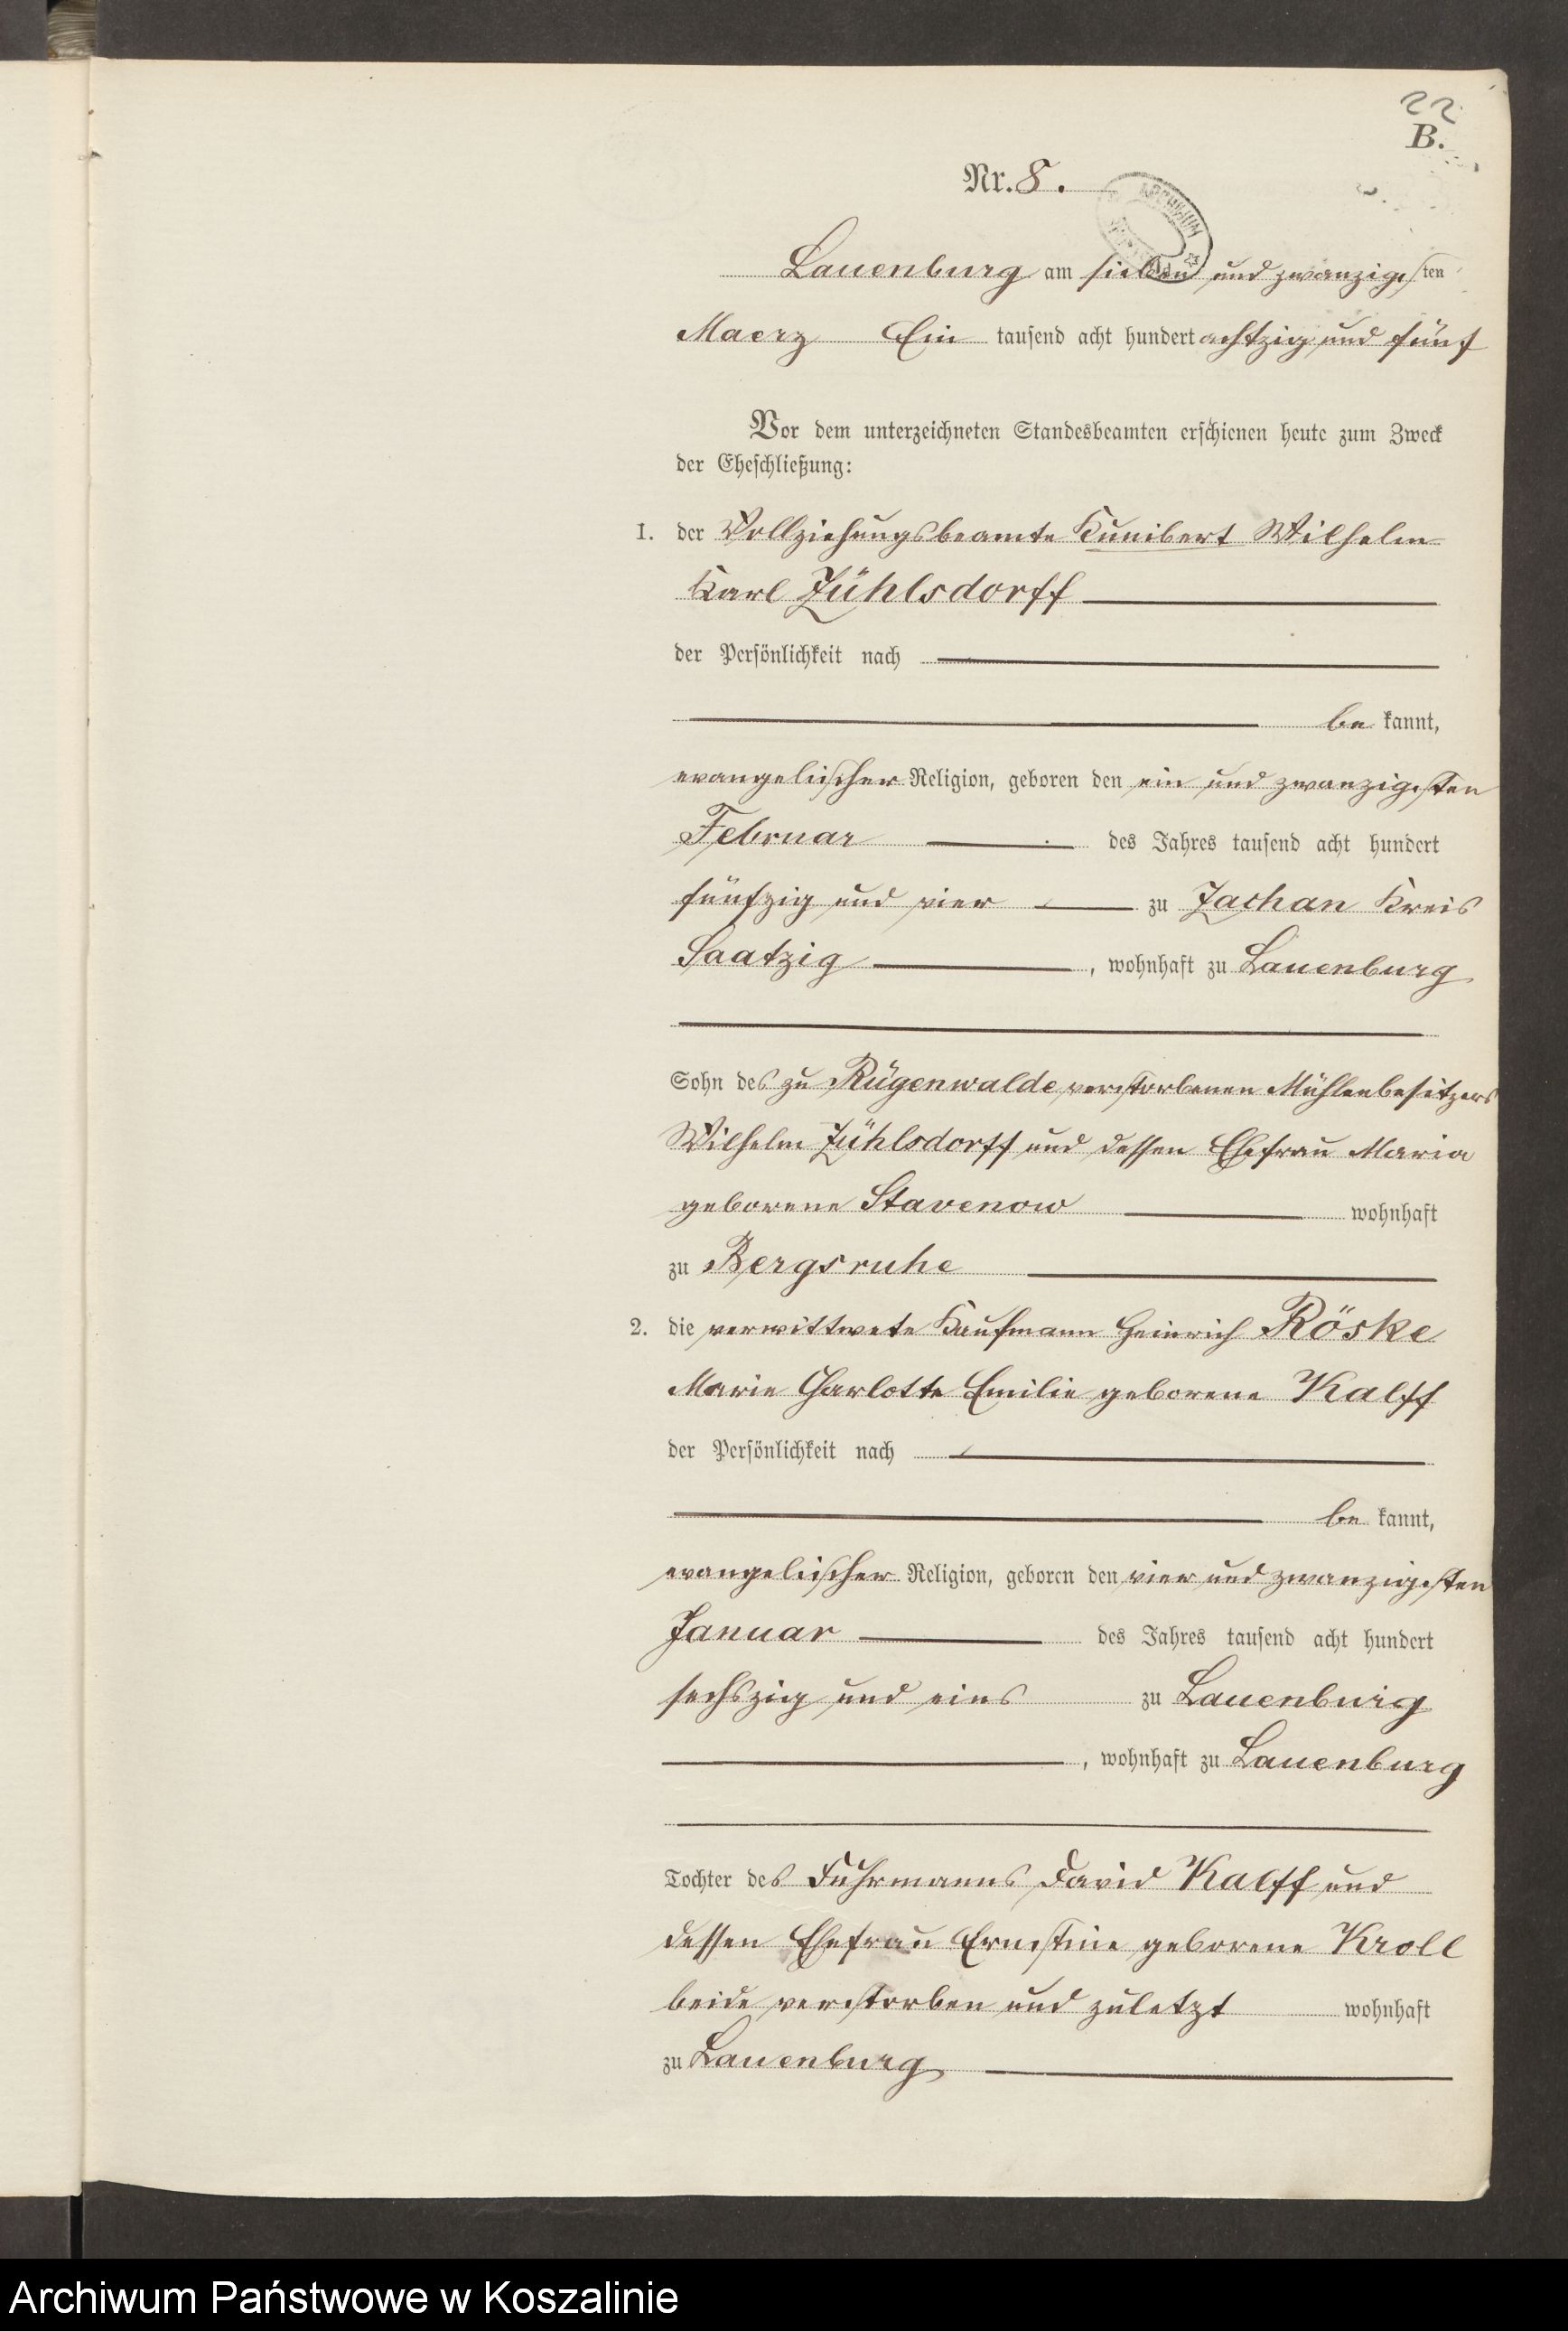 22
B.
Nr. 8.
ARCHIWUM
Lauenburg am sieben und zwanzigsten
Maerz Ein tausend acht hundert achtzig und fünf
Vor dem unterzeichneten Standesbeamten erschienen heute zum Zweck
der Eheschließung:
1. der Vollziehungsbeamte Kunibert Wilhelm
Karl Zühlsdorff
der Persönlichkeit nach
be kannt,
evangelischer Religion, geboren den ein und zwanzigsten
Februar des Jahres tausend acht hundert
fünfzig und vier zu Zachan Kreis
Saatzig, wohnhaft zu Lauenburg
Sohn des zu Rügenwalde verstorbenen Mühlenbesitzers
Wilhelm Zühlsdorff und dessen Ehefrau Maria
geborene Stavenow wohnhaft
zu Bergsruhe
2. die verwittwete Kaufmann Heinrich Röske
Marie Charlotte Emilie geborene Kalff
der Persönlichkeit nach
be kannt,
evangelischer Religion, geboren den vier und zwanzigsten
Januar des Jahres tausend acht hundert
sechszig und eins zu Lauenburg
, wohnhaft zu Lauenburg
Tochter des Fuhrmanns David Kalff und
dessen Ehefrau Ernestine geborene Kroll
beide verstorben und zuletzt wohnhaft
zu Lauenburg
Archiwum Państwowe w Koszalinie